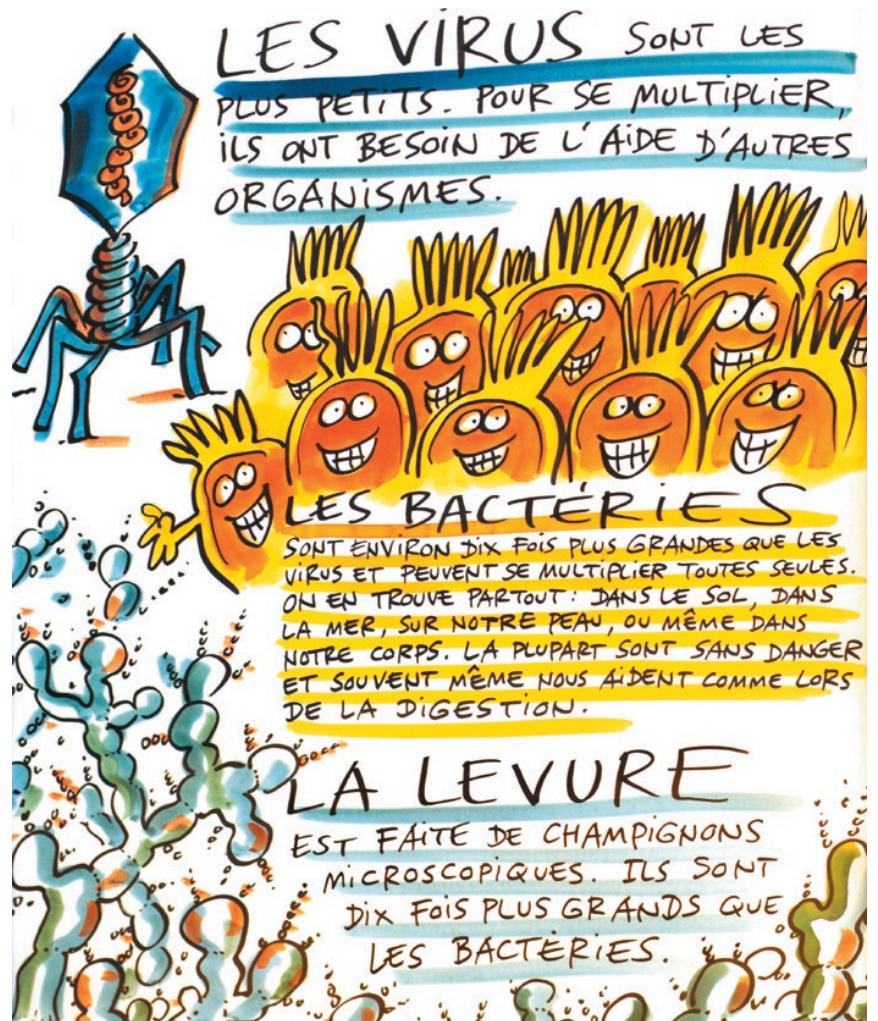 LES VIRUS SONT LES
PLUS PETITS. POUR SE MULTIPLIER,
ILS ONT BESOIN DE L'AIDE D'AUTRES
ORGANISMES.
LES BACTÉRIES
SONT ENVIRON DIX FOIS PLUS GRANDES QUE LES
VIRUS ET PEUVENT SE MULTIPLIER TOUTES SEULES.
ON EN TROUVE PARTOUT: DANS LE SOL, DANS
LA MER, SUR NOTRE PEAU, OU MÊME DANS
NOTRE CORPS. LA PLUPART SONT SANS DANGER
ET SOUVENT MÊME NOUS AIDENT COMME LORS
DE LA DIGESTION.
LA LEVURE
EST FAITE DE CHAMPIGNONS
MICROSCOPIQUES. ILS SONT
DIX FOIS PLUS GRANDS QUE
LES BACTÉRIES.